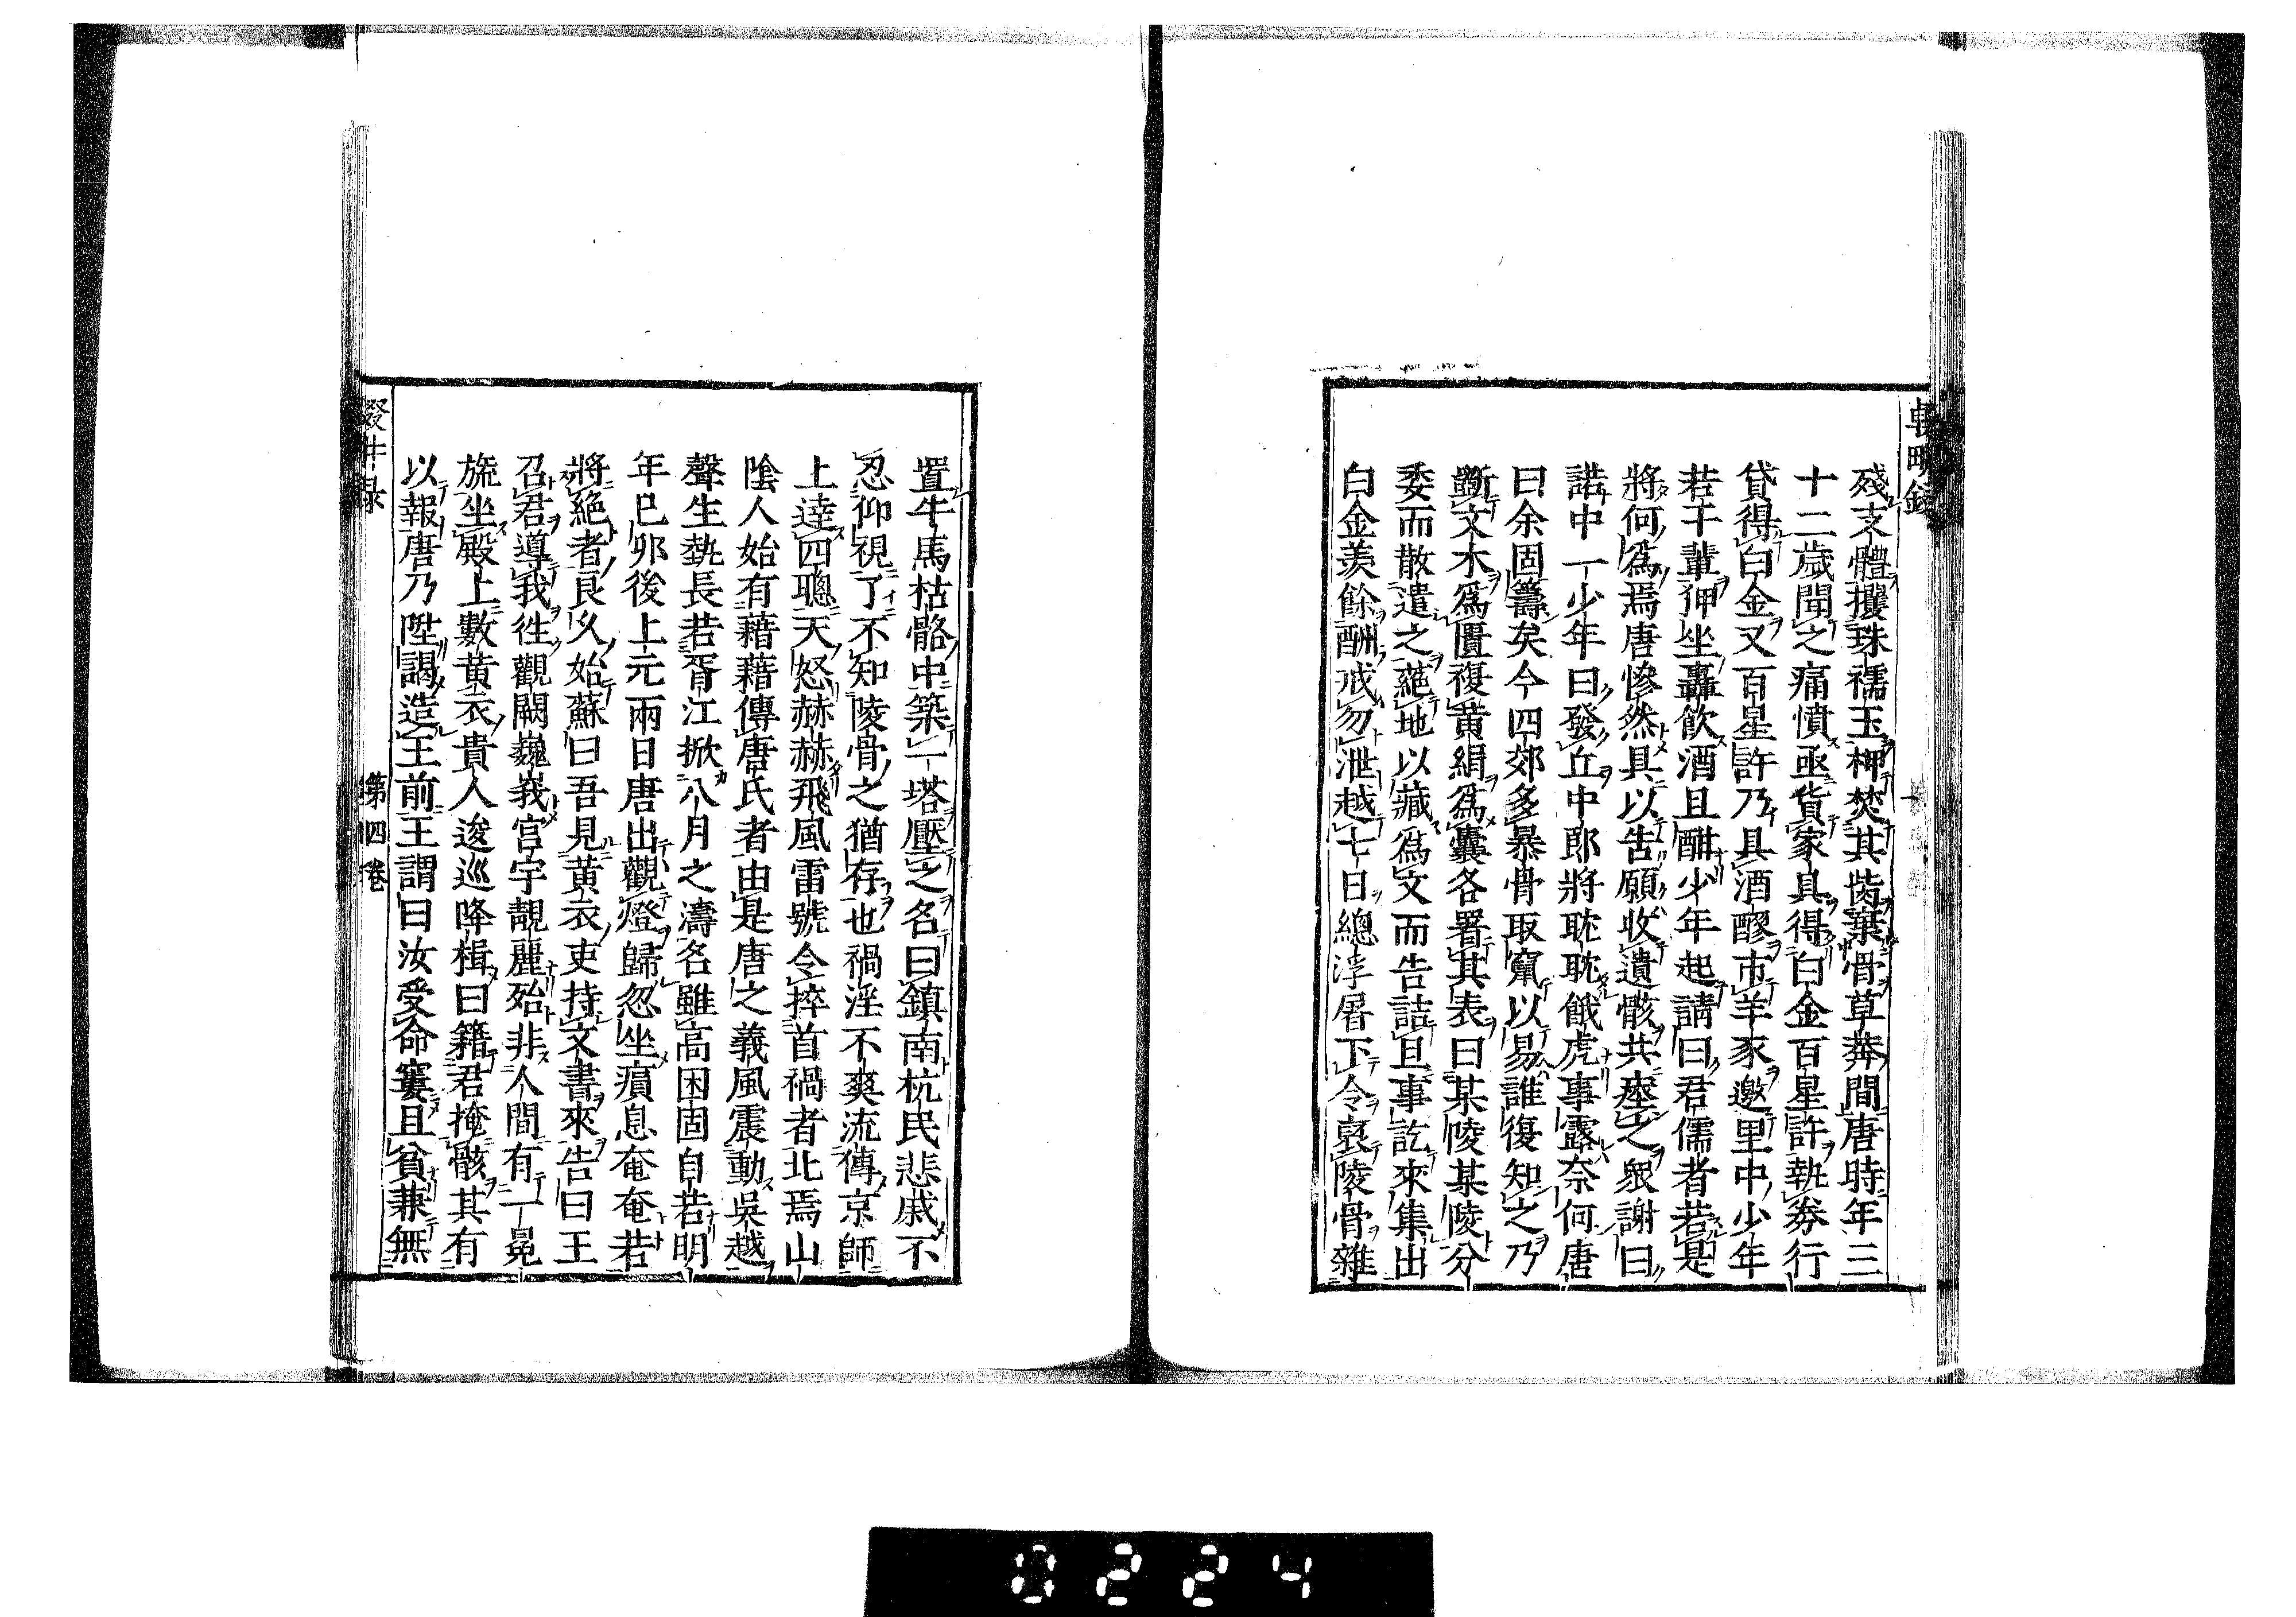 殘支體攫珠襦玉柙焚其胔棄骨草莽間唐時年三
十二歲聞之痛憤亟貨家具得白金百星許執券行
貸得白金又百星許乃具酒醪市羊豕邀里中少年
若干輩狎坐轟飲酒且酣少年起請曰君儒者若是
將何爲焉唐慘然具以告願收遺骸共瘞之衆謝曰
諾中一少年曰發丘中郎將耽耽餓虎事露奈何唐
曰余固籌矣今四郊多暴骨取竄以易誰復知之乃
斲文木爲匱複黃絹爲囊各署其表曰某陵某陵分
委而散遣之蕝地以藏爲文而告詰旦事訖來集出
白金羨餘酬戒勿泄越七日總浮屠下令裒陵骨雜
置牛馬枯骼中築一塔壓之名曰鎮南杭民悲戚不
忍仰視了不知陵骨之猶存也禍淫不爽流傳京師
上達四聰天怒赫赫飛風雷號令捽首禍者北焉山
陰人始有藉藉傳唐氏者由是唐之義風震動吳越
聲生埶長若胥江掀八月之濤名雖高困固自若明
年巳卯後上元兩日唐出觀燈歸忽坐瘨息奄奄若
將絕者良久始蘇曰吾見黃衣吏持文書來告曰王
召君導我往觀闕巍峩宮宇靚麗殆非人間有一冕
旒坐殿上數黃衣貴人逡巡降楫曰籍君掩骸其有
以報唐乃陞謁造王前王謂曰汝受命窶且貧兼無
輟畊録
第四卷